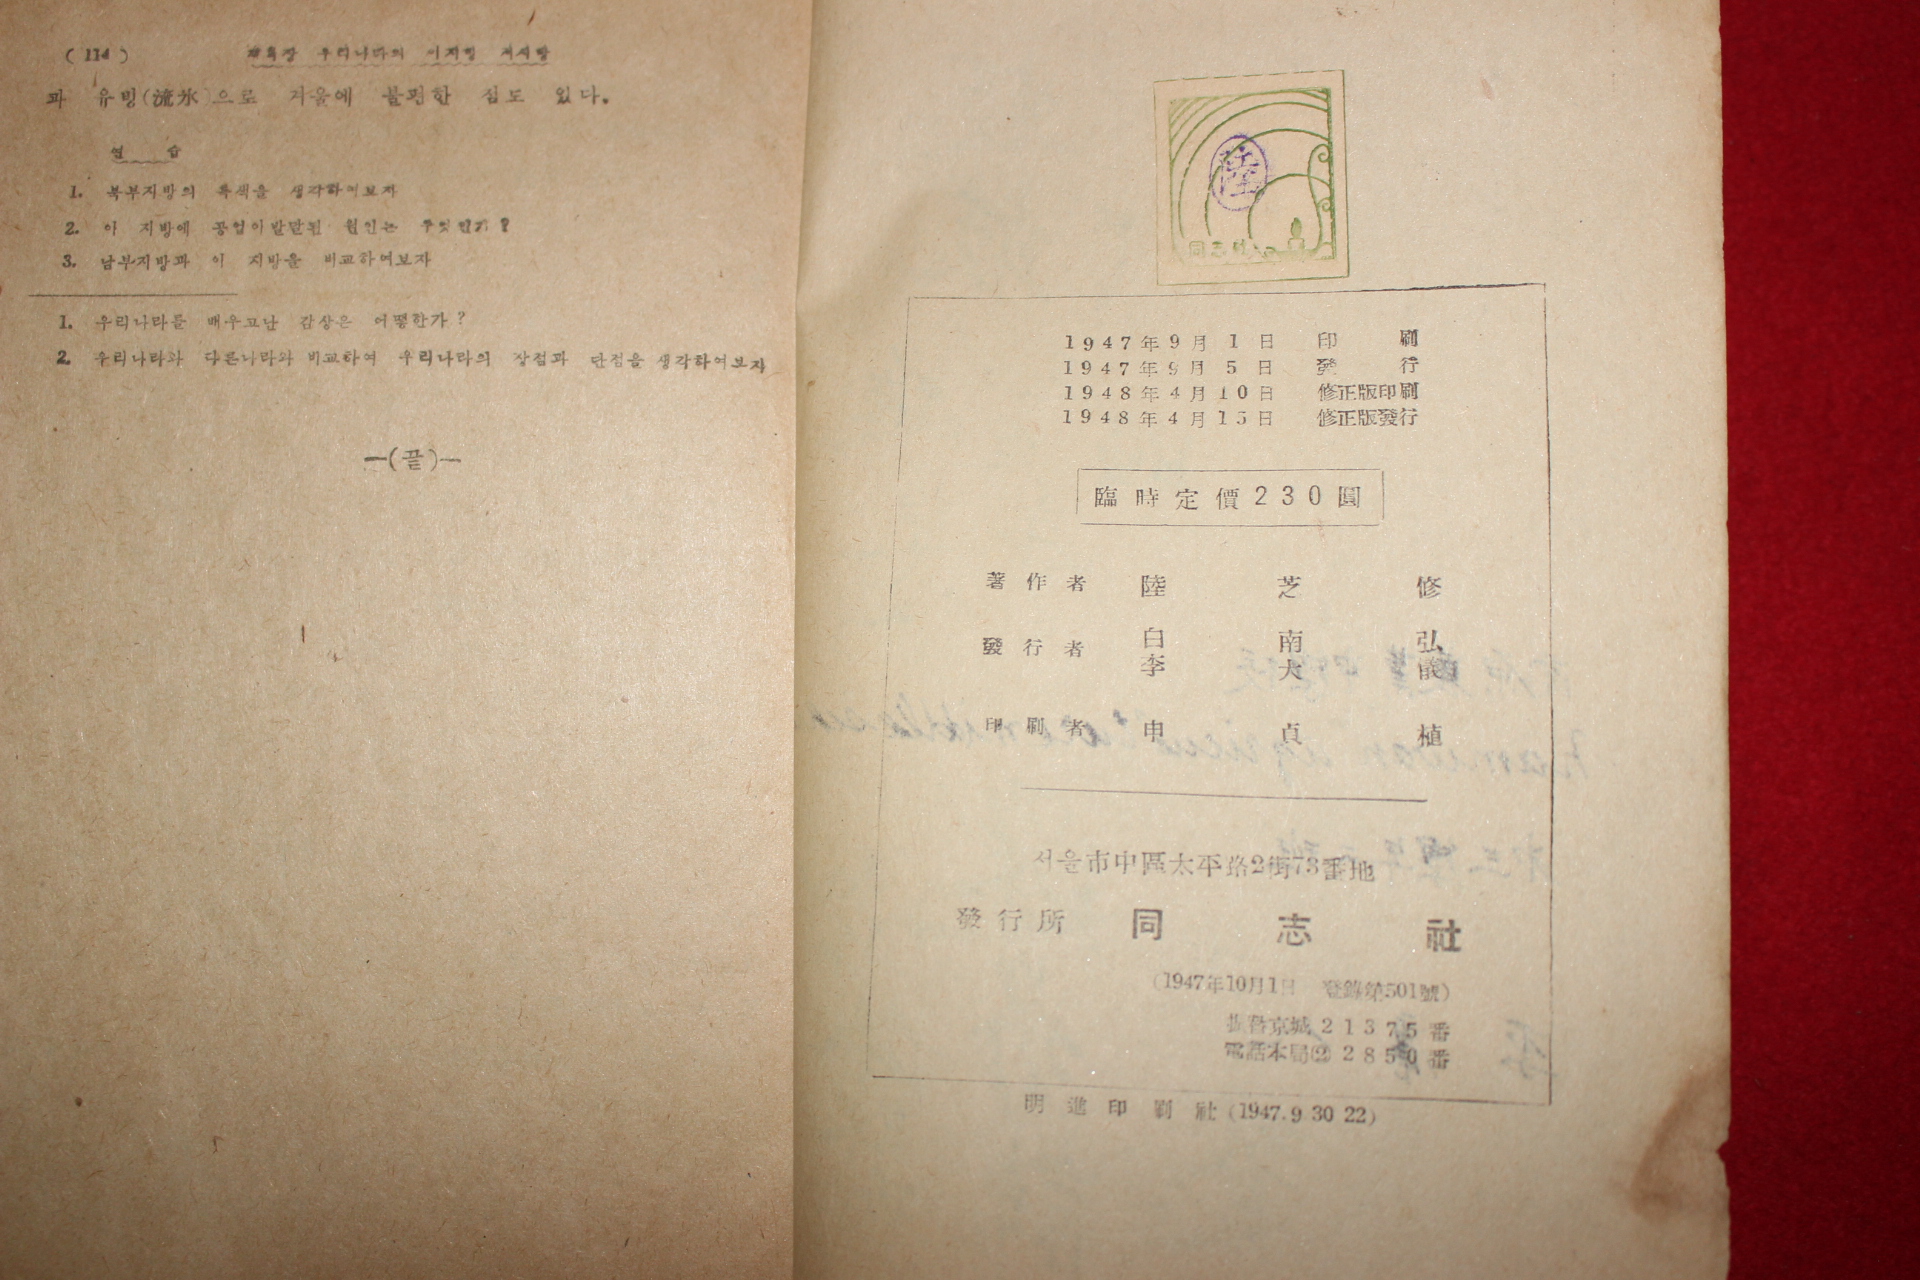 ( 114 )
우리나라의 이지방 저지방
과 유빙(流氷)으로 겨울에 불편한 점도 있다.
연 습
1. 북부지방의 특색을 생각하여보자
2. 이 지방에 공업이발달된 원인은 무엇인가?
3. 남부지방과 이 지방을 비교하여보자
1. 우리나라를 배우고난 감상은 어떻한가?
2. 우리나라와 다른나라와 비교하여 우리나라의 장점과 단점을 생각하여보자
—(끝)—
陸
同志社
1947年9月1日 印刷
1947年9月5日 發行
1948年4月10日 修正版印刷
1948年4月15日 修正版發行
臨時定價230圓
著作者 陸芝修
發行者 白南弘
李大儀
印刷者 申貞植
서울市中區太平路2街73番地
發行所 同志社
(1947年10月1日 登錄第501號)
振替京城21375番
電話本局② 2850番
明進印刷社 (1947.9 30 22)